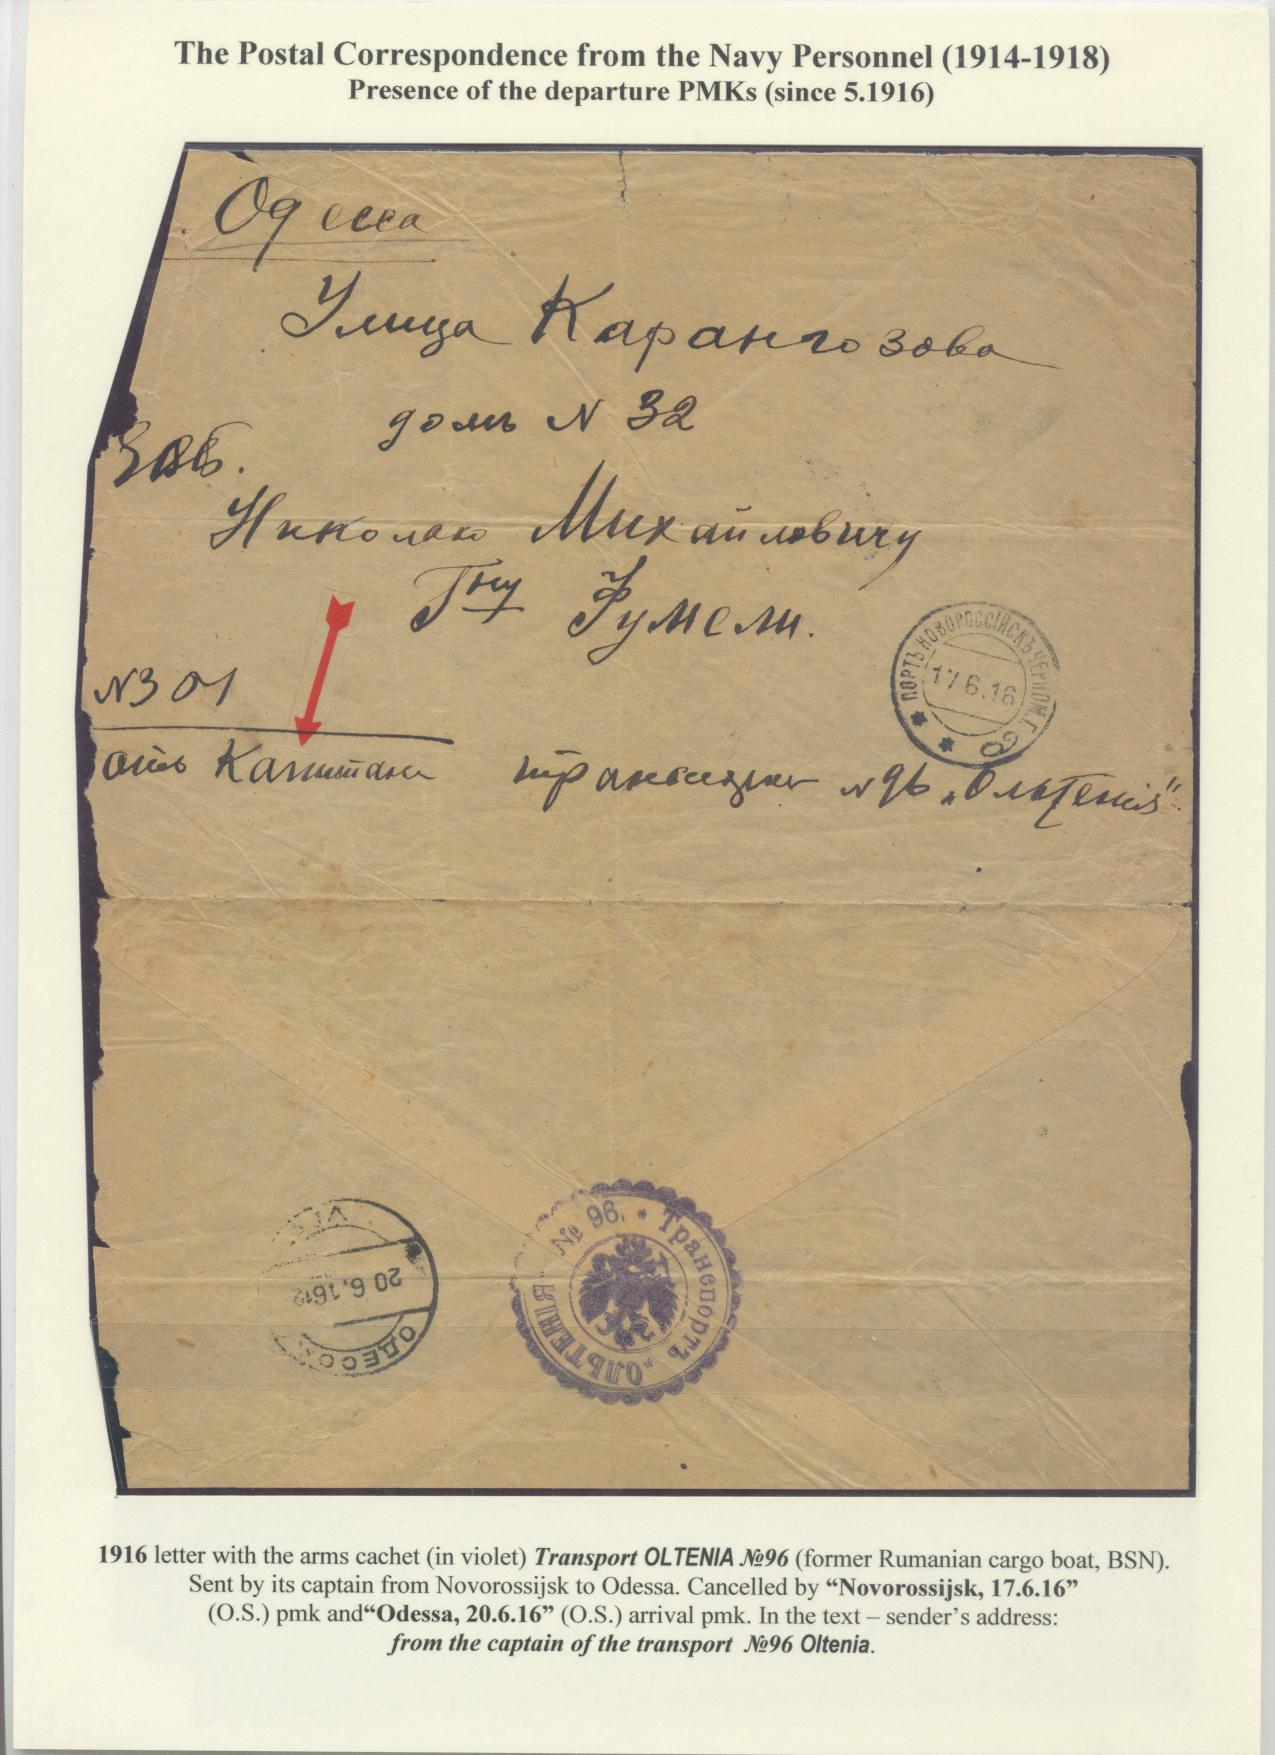 The Postal Correspondence from the Navy Personnel (1914-1918)
Presence of the departure PMKs (since 5.1916)
Одесса
Улица Карангозова
домъ N 32
Зак.
Николаю Михайловичу
Гну Фумели.
ПОРТЪ НОВОРОССІЙСКЪ ЧЕРНОМ. Г.
17 6.16
N 301
отъ Капитана транспорта N 96 „Ольтенія"
№ 96. * Транспортъ * ОЛЬТЕНІЯ
ОДЕССА
20 6.16 12
1916 letter with the arms cachet (in violet) Transport OLTENIA №96 (former Rumanian cargo boat, BSN).
Sent by its captain from Novorossijsk to Odessa. Cancelled by “Novorossijsk, 17.6.16”
(O.S.) pmk and“Odessa, 20.6.16” (O.S.) arrival pmk. In the text – sender’s address:
from the captain of the transport №96 Oltenia.